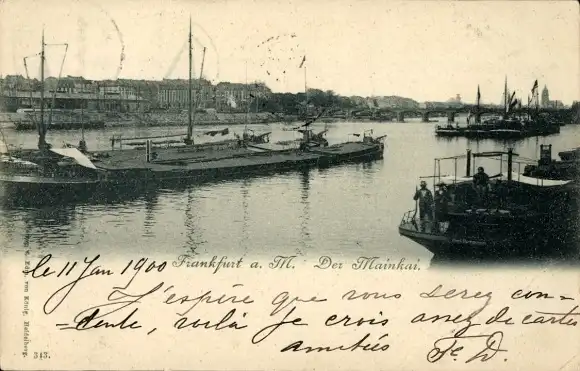 le 11 Jan 1900
Frankfurt a. M. Der Mainkai.
J'espère que vous serez con=
=tente, voilà je crois assez de cartes
amitiés
313.